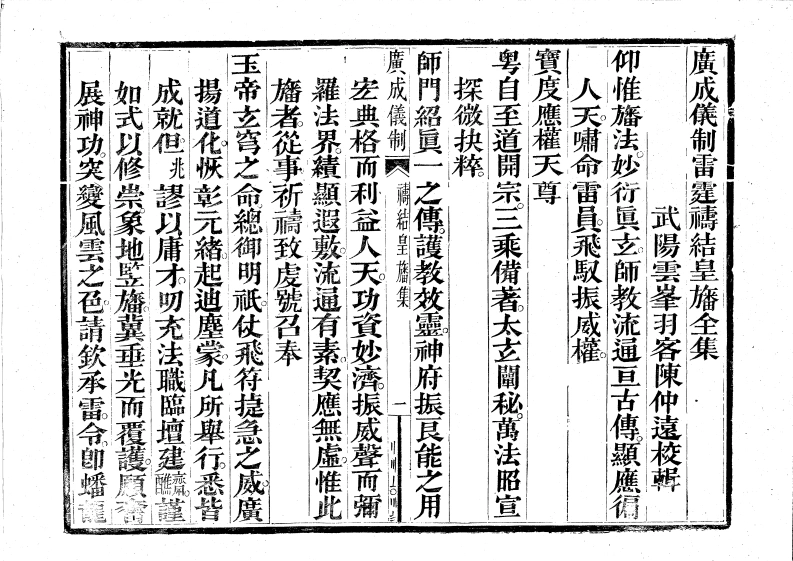 廣成儀制雷霆禱結皇旛全集
武陽雲峯羽客陳仲遠校輯
仰惟旛法。妙衍眞玄。師教流通。亘古傳。顯應徧
人天。嘯命雷員。飛馭振威權。
寶度應權天尊
粤自至道開宗。三乘備著。太玄闡秘。萬法昭宣
探微抉粹。
師門紹眞一之傳。護教效靈。神府振良能之用
廣成儀制
禱結皇旛集
一
宏典格而利益人天。功資妙濟。振威聲而彌
羅法界。績顯遐敷。流通有素。契應無虛。惟此
旛者。從事祈禱。致虔號召。奉
玉帝玄穹之命。總御明祇。仗飛符捷急之威。廣
揚道化。恢彰元緒。起迪塵蒙。凡所舉行。悉皆
成就。但兆謬以庸才。叨充法職。臨壇建齋醮謹
如式以修崇。象地竪旛。冀垂光而覆護。願
展神功。突變風雲之色。請欽承雷令。卽蟠龍